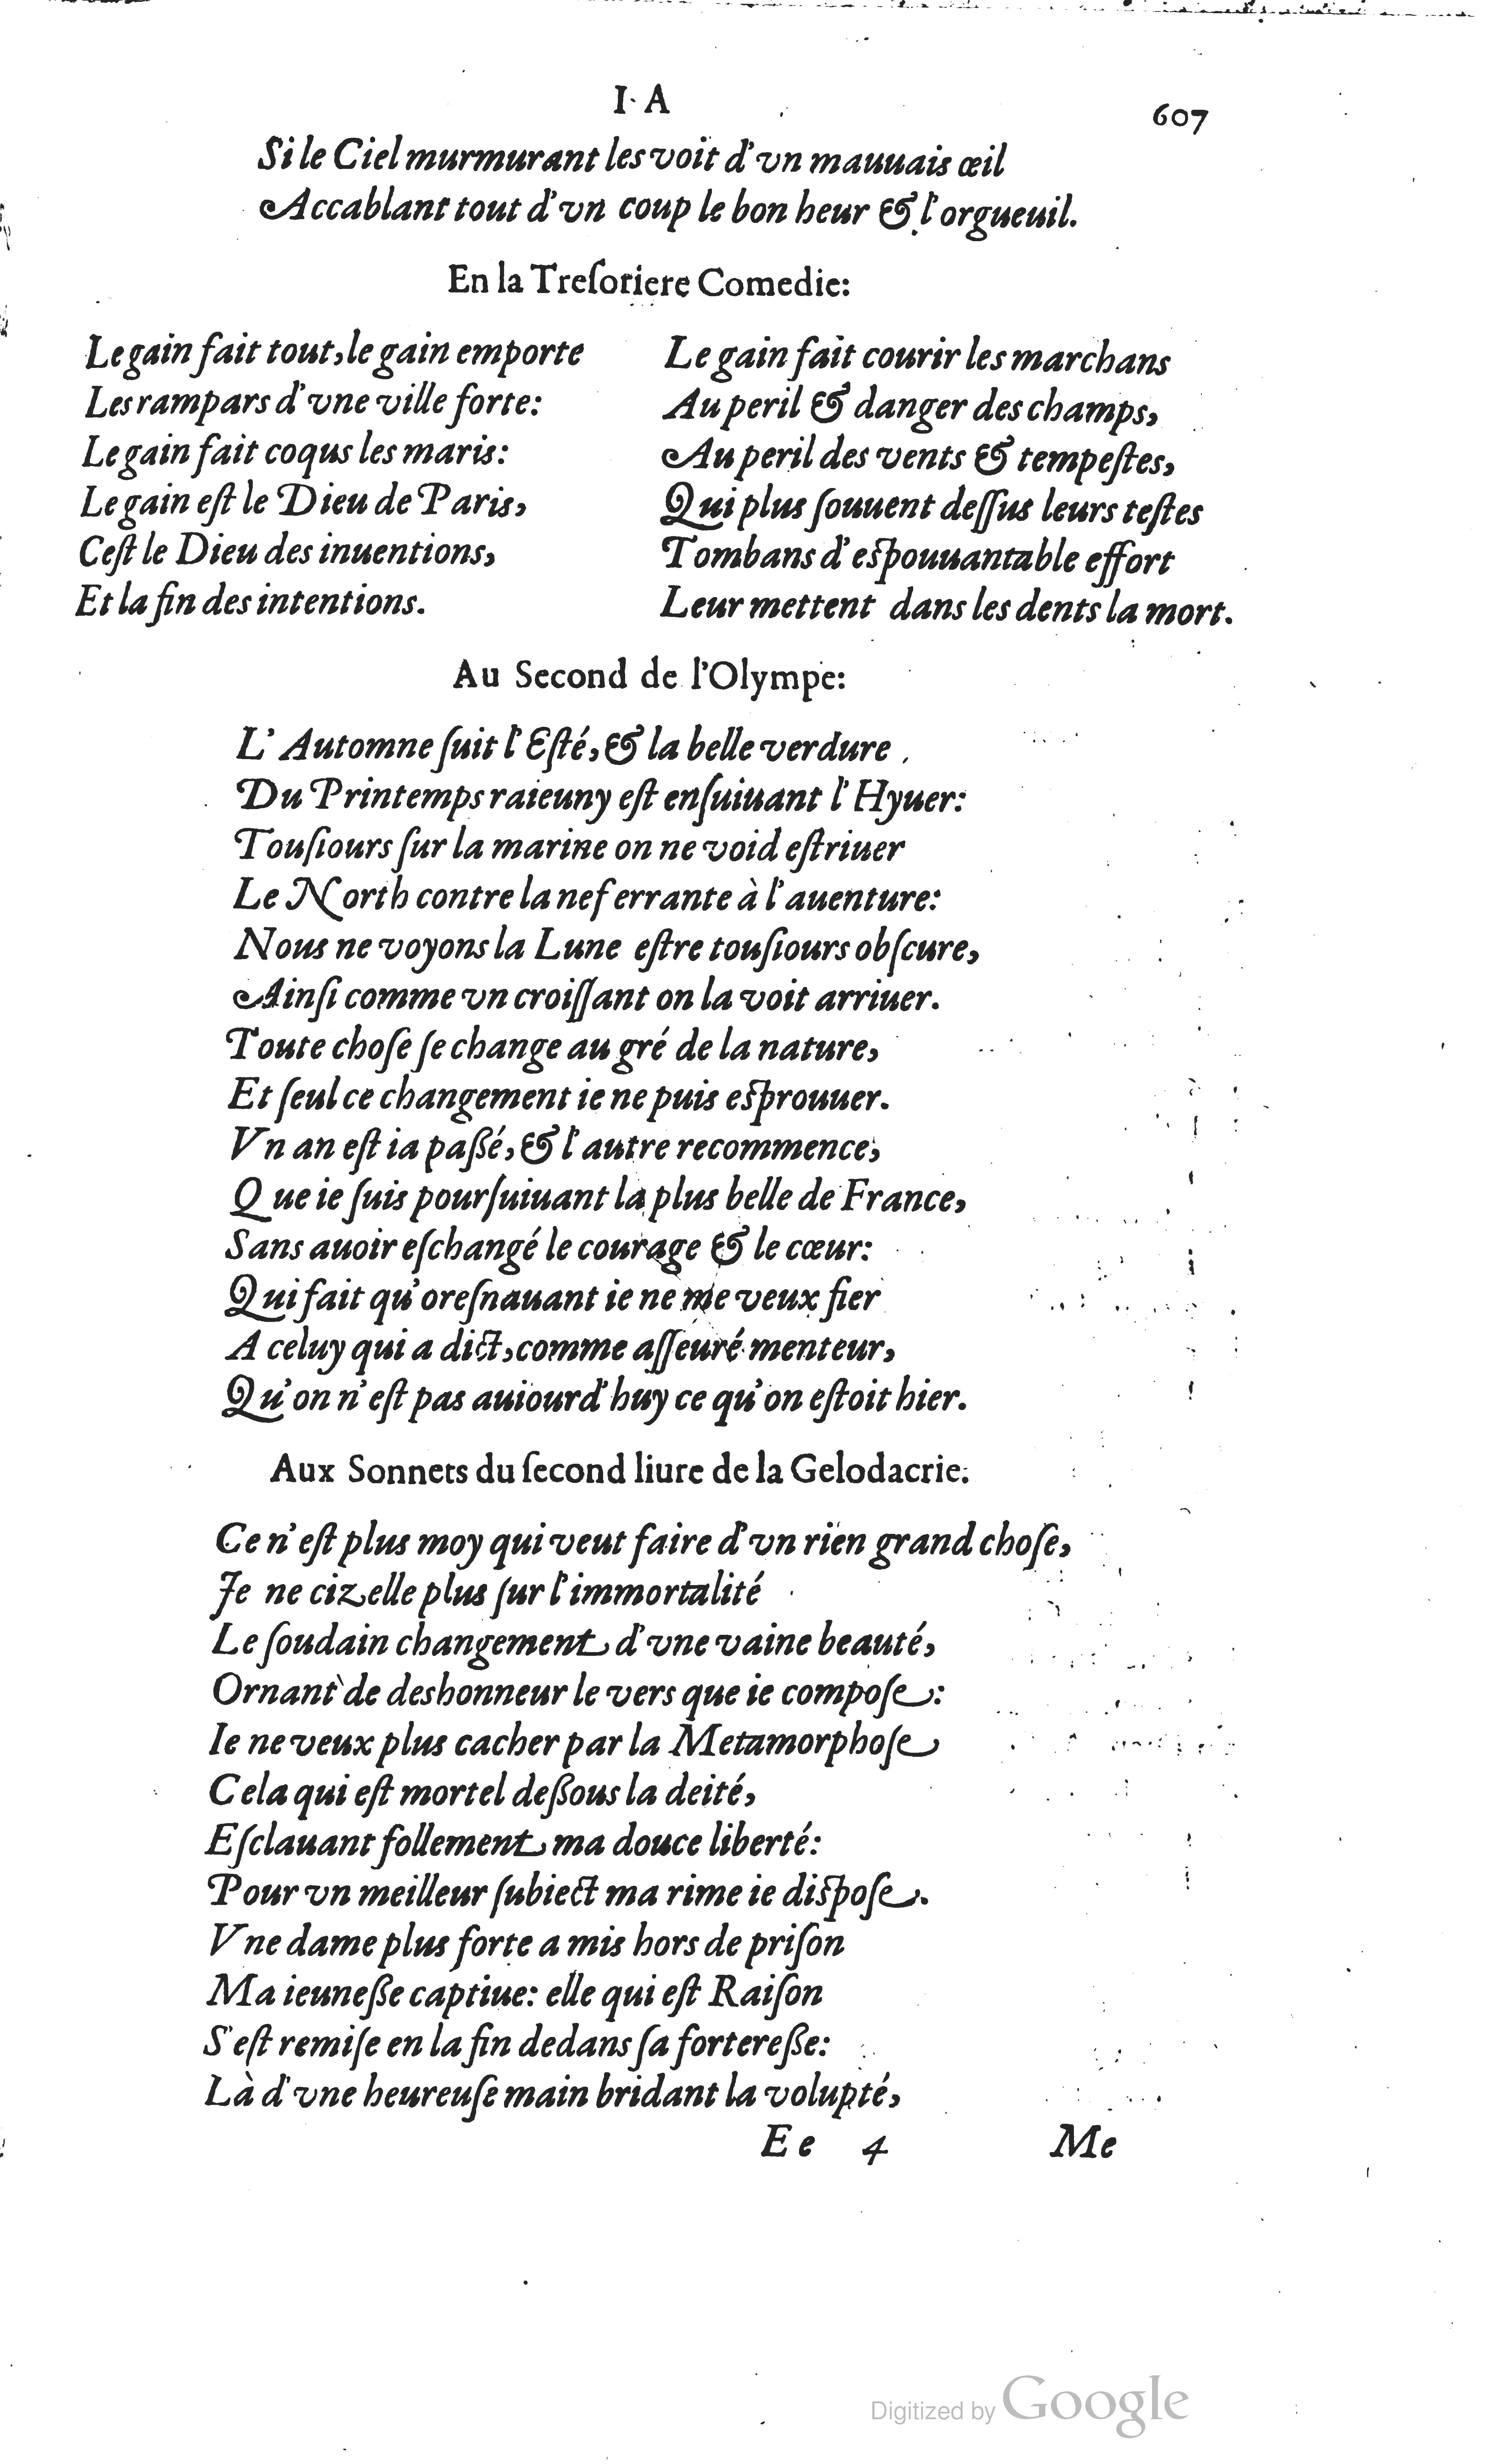 I. A
607
Si le Ciel murmurant les voit d'vn mauuais œil
Accablant tout d'vn coup le bon heur & l'orgueuil.
En la Treſoriere Comedie:
Le gain fait tout, le gain emporte
Les rampars d'vne ville forte:
Le gain fait coqus les maris:
Le gain eſt le Dieu de Paris,
Ceſt le Dieu des inuentions,
Et la fin des intentions.
Le gain fait courir les marchans
Au peril & danger des champs,
Au peril des vents & tempeſtes,
Qui plus ſouuent deſſus leurs teſtes
Tombans d'eſpouuantable effort
Leur mettent dans les dents la mort.
Au Second de l'Olympe:
L'Automne ſuit l'Eſté, & la belle verdure
Du Printemps raieuny eſt enſuiuant l'Hyuer:
Touſiours ſur la marine on ne void eſtriuer
Le North contre la nef errante à l'auenture:
Nous ne voyons la Lune eſtre touſiours obſcure,
Ainſi comme vn croiſſant on la voit arriuer.
Toute choſe ſe change au gré de la nature,
Et ſeul ce changement ie ne puis eſprouuer.
Vn an eſt ia paßé, & l'autre recommence,
Que ie ſuis pourſuiuant la plus belle de France,
Sans auoir eſchangé le courage & le cœur:
Qui fait qu'oreſnauant ie ne me veux fier
A celuy qui a dict, comme aſſeuré menteur,
Qu'on n'eſt pas auiourd'huy ce qu'on eſtoit hier.
Aux Sonnets du ſecond liure de la Gelodacrie.
Ce n'eſt plus moy qui veut faire d'vn rïen grand choſe,
Je ne cizelle plus ſur l'immortalité
Le ſoudain changement d'vne vaine beauté,
Ornant de deshonneur le vers que ie compoſe:
Ie ne veux plus cacher par la Metamorphoſe
Cela qui eſt mortel deßous la deité,
Eſclauant follement ma douce liberté:
Pour vn meilleur ſubiect ma rime ie diſpoſe.
Vne dame plus forte a mis hors de priſon
Ma ieuneße captiue: elle qui eſt Raiſon
S'eſt remiſe en la fin dedans ſa fortereße:
Là d'vne heureuſe main bridant la volupté,
Ee 4
Me
Digitized by Google